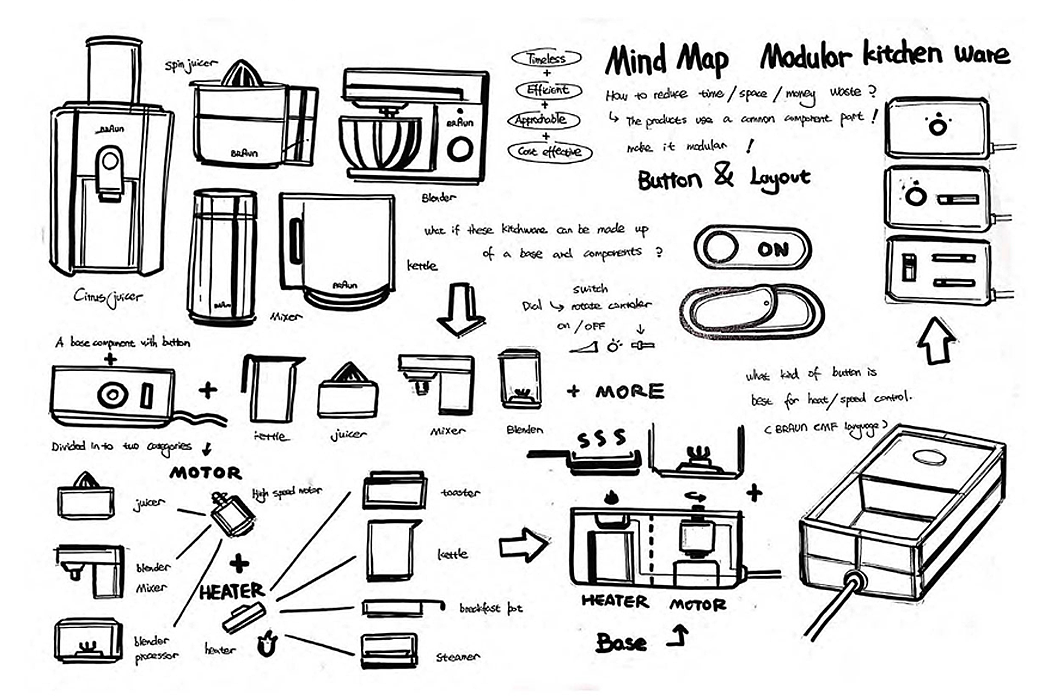 Mind Map Modular kitchen ware
How to reduce time/space/money waste?
↳ The products use a common component part!
make it modular!
Timeless
+
Efficient
+
Approchable
+
Cost effective
Button & Layout
spin juicer
BRAUN
BRAUN
BRAUN
Blender
BRAUN
BRAUN
Citrus/juicer
Mixer
kettle
what if these kitchware can be made up
of a base and components?
ON
switch
Dial ↳ rotate controler
on/OFF
A base component with button
+
+
kettle
juicer
Mixer
Blender
+ MORE
what kid of button is
best for heat/speed control.
(BRAUN EMF language)
Divided in to two categories
MOTOR
High speed motor
juicer
blender
Mixer
blender
processor
+
HEATER
heater
toaster
kettle
breakfast pot
Steamer
SSS
+
HEATER MOTOR
Base